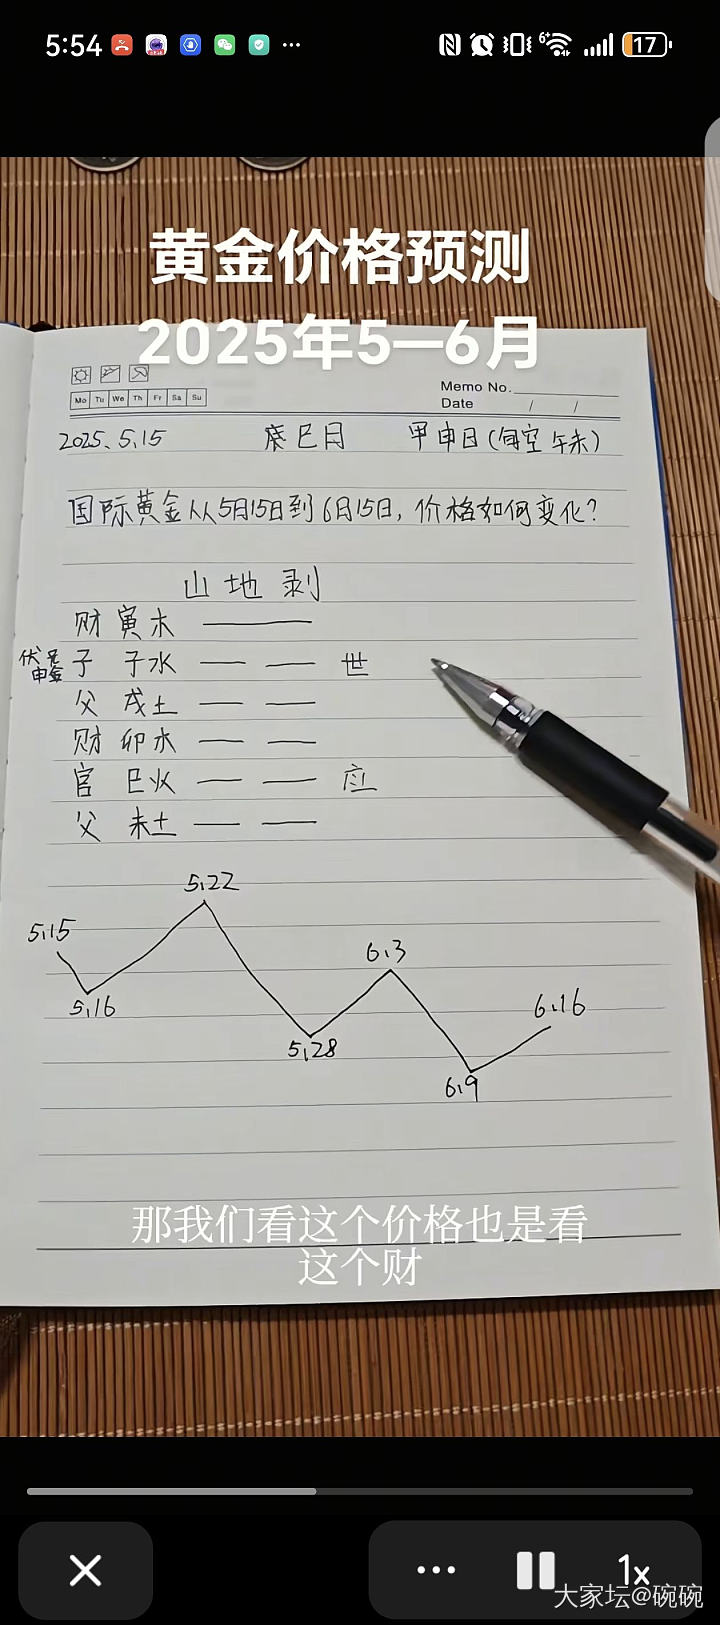 5:54
17
黄金价格预测
2025年5—6月
Mo Tu We Th Fr Sa Su
Memo No.
Date / /
2025.5.15 巳月 甲申日(旬空 午未)
国际黄金从5月15日到6月15日,价格如何变化?
山地剥
财 寅木
伏兄申金 子 子水 世
父 戌土
财 卯木
官 巳火 应
父 未土
5.22
5.15
6.3
5.16
6.16
5.28
6.9
那我们看这个价格也是看
这个财
1x
大家坛@碗碗